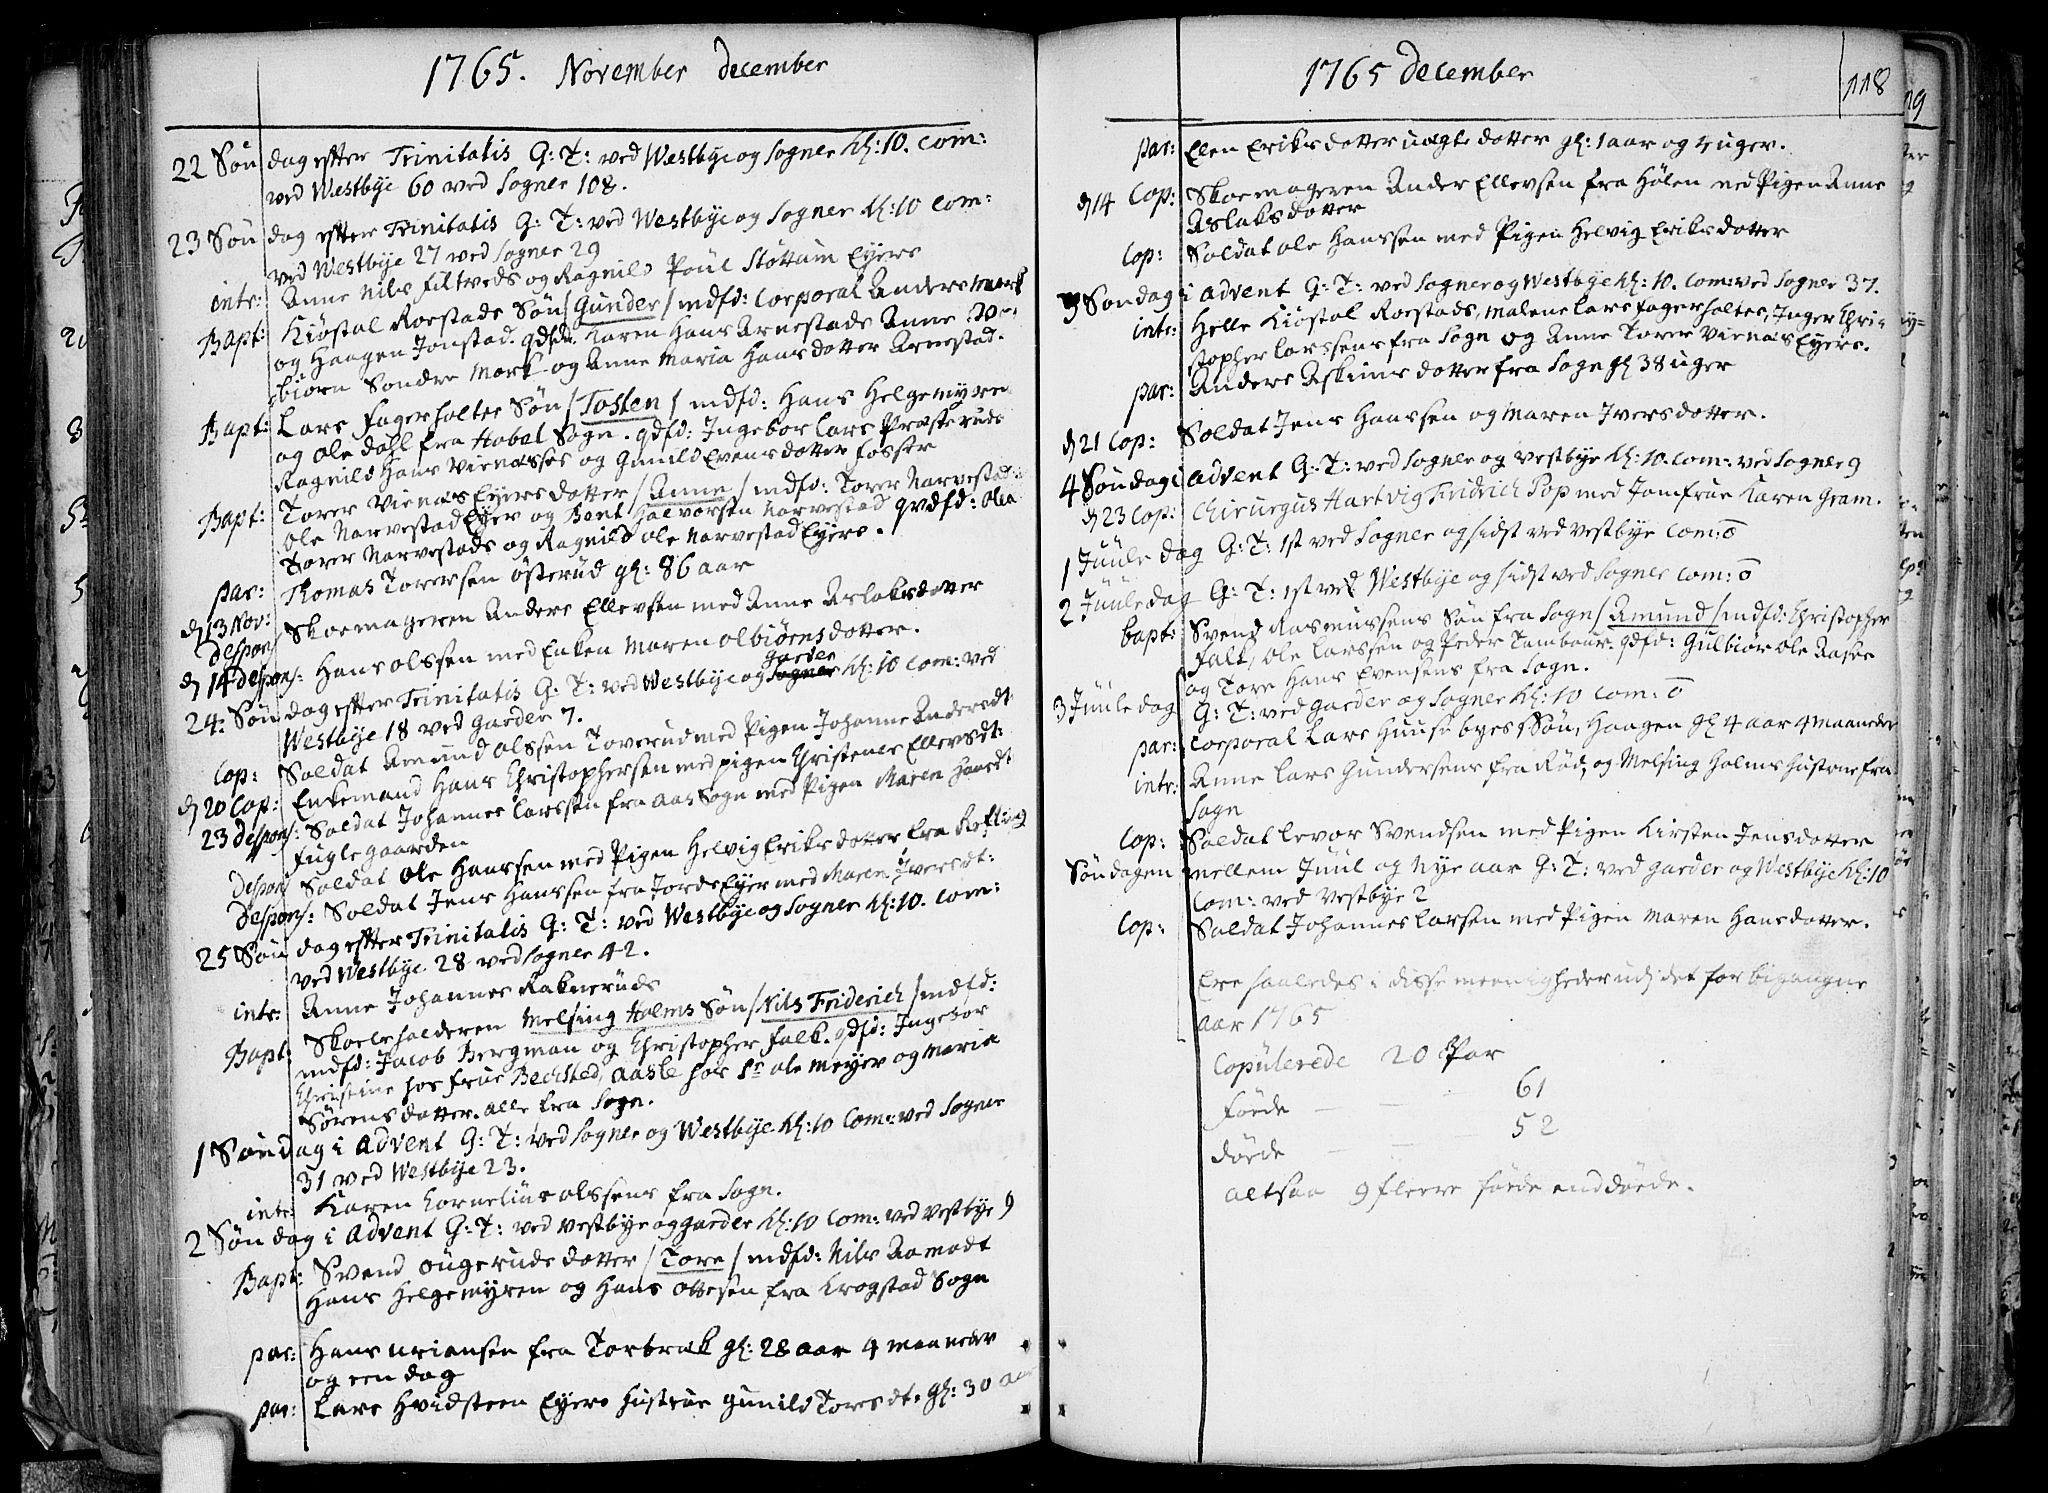 1765. November december
22 Søndag efter Trinitatis G: T: ved Westbye og Sogner kl: 10. Com:
ved Westbye 60 ved Sogner 108.
23 Søndag efter Trinitatis G: T: ved Westbye og Sogner kl: 10 Com:
ved Westbye 27 ved Sogner 29
intr: Anne Nils Filtveds og Ragnild Poul Støttum Eyers
Bapt: Kiøstol Roestads Søn / Gunder / mdfd: Corporal Anders mark
og Haagen Jonstad. qdfd: Karen Hans Arnestads Anne Tor-
biørn Søndre Mork og Anne Maria Hansdotter Arnestad.
Bapt: Lars Fagerholtes Søn / Tosten / mdfd: Hans Helgemyren
og Ole dahl fra Hobøl Sogn. qdfd: Ingebor Lars Præsteruds
Ragnild Hans Vienæsses og Gunild Evensdotter Fosser
Bapt: Torer Vienæs Eyers dotter / Anne / mdfd: Torer Narvestad
Ole Narvestad Eyer og Bent Halvorsen Narvestad qvdfd: Olea
Torer Narvestads og Ragnild Ole Narvestad Eyers.
par: Thomas Torersen Østerud gl: 86 aar
d 13 Nov:
despons: Skoemageren Anders Ellevsen med Anne Aslaksdotter
d 14 despons: Hans Olssen med Enken Maren Olbiørnsdotter.
garder
24: Søndag efter Trinitatis G: T: ved Westbye og Sogner kl: 10 Com: ved
Westbye 18 ved Garder 7.
Cop: Soldat Amund Olssen Toverud med Pigen Johanne Andersdt
d 20 Cop: Enkemand Hans Christophersen med pigen Christense Ellevsdt:
23 despons: Soldat Johannes Larssen fra Aas Sogn med Pigen Maren Hansdt
Fuglegaarden
Despons Soldat Ole Hanssen med Pigen Helvig Eriksdotter fra Kofting
Despons: Soldat Jens Hanssen fra Jords Eyer med Maren Iversdt:
25 Søndag efter Trinitatis G: T: ved Westbye og Sogner kl: 10. Com:
ved Westbye 28 ved Sogner 42.
intr: Anne Johannes Rakneruds
Bapt: Skoeleholderen Melsing Holms Søn / Nils Friderich / mdfd:
mdfd: Jacob Bergman og Christopher Falk. qdfd: Ingebor
Christine hos Frue Bechsted, Aaste hos Sr Ole Meyer og Maria
Sørensdotter. alle fra Sogn.
1 Søndag i Advent G: T: ved Sogner og Westbye kl: 10 Com: ved Sogner
31 ved Westbye 23.
intr: Karen Cornelius Olssens fra Sogn.
2 Søndag i Advent G: T: ved Vestbye og garder kl: 10 Com: ved Vestbye 9
Bapt: Svend Ougeruds dotter / Tore / mdfd: Nils Aamodt
Hans Helgemyren og Hans Ottesen fra Krogstad Sogn
par: Hans Uriansen fra Torbræk gl: 28 aar 4 maaneder
og een dag
par: Lars Hvidsteen Eyers Hustrue Gunild Toresdt. gl: 30 aar
1765 December
118
par: Elen Eriksdotter uægte dotter gl: 1 aar og 4 uger.
d 14 Cop: Skoemageren Ander Ellevsen fra Hølen med Pigen Anne
Aslaksdotter
Cop: Soldat Ole Hanssen med Pigen Helvig Eriksdotter
3 Søndag i Advent G: T: ved Sogner og Westbye kl: 10. Com: ved Sogner 37.
intr: Helle Kiøstol Roestads, Malene Lars Fagerholtes, Inger Chri-
stopher Larssens fra Sogn og Anne Torer Vienæs Eyers.
par: Anders Askims dotter fra Sogn gl 38 uger
d 21 Cop: Soldat Jens Hanssen og Maren Iversdotter.
4 Søndag i Advent G: T: ved Sogner og Vestbye kl: 10. Com: ved Sogner 9
d 23 Cop: Chirurgus Hartvig Fridrich Pop med Jomfrue Karen Gram.
1 Juule dag G: T: 1st ved Sogner og sidst ved Vestbye Com: 0
2 Juule dag G: T: 1st ved Westbye og sidst ved Sogner Com: 0
bapt: Svend Rasmussens Søn fra Sogn / Amund / mdfd: Christopher
Falk, Ole Larssen og Peder Tambour. qdfd: Gulbiør Ole Aases
og Tore Hans Evensens fra Sogn.
3 Juule dag G: T: ved garder og Sogner kl: 10 Com: 0
par: Corporal Lars Huusebyes Søn, Haagen gl 4 aar 4 maaneder
intr: Anne Lars Gundersens fra Rød, og Melsing Holms Hustrue fra
Sogn
Cop: Soldat Levor Svendsen med Pigen Kirsten Jensdotter
Søndagen mellem Juul og Nye aar G: T: ved garder og Westbye kl: 10
Com: ved Vestbye 2
Cop: Soldat Johannes Larsen med Pigen Maren Hansdotter.
Ere saaledes i disse meenigheder udj det forbigangne
Aar 1765
Copulerede 20 Par
Føede 61
døede 52
altsaa 9 fleere føede end døede.